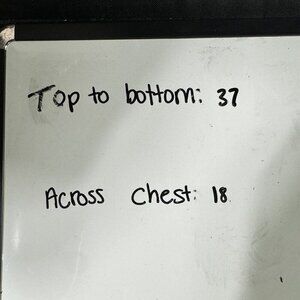 Top to bottom: 37
Across Chest: 18